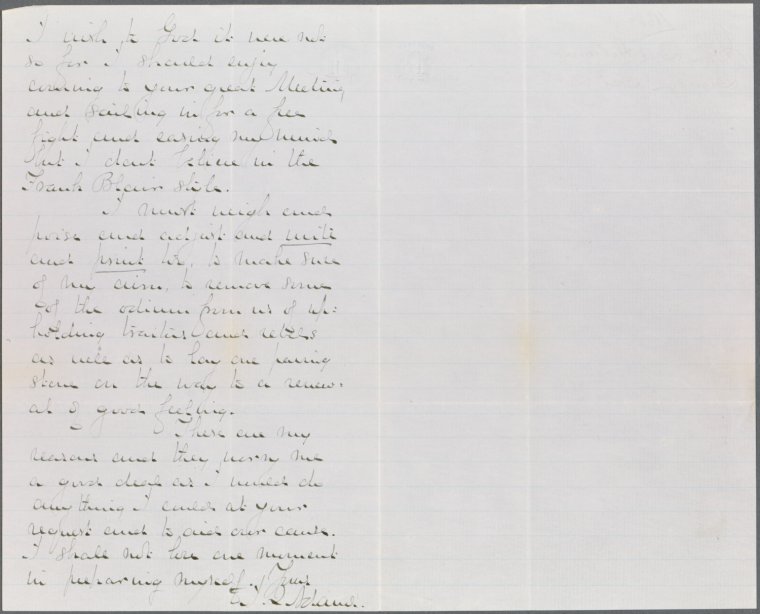 I wish to God it were not
so for I should enjoy
coming to your great Meeting
and sailing in for a free
fight and easing my mind
but I dont believe in the
Frank Blair stile.
I must weigh and
poise and adjust and write
and print too, to make sure
of my aim, to remove some
of the odium from us of up=
holding traitors and rebels
as well as to lay one paving
stone on the way to a renew=
al of good feeling.
These are my
reasons and they worry me
a good deal as I would do
anything I could at your
request and to aid our cause.
I shall not lose one moment
in preparing myself. Yours
J. Q. Adams.